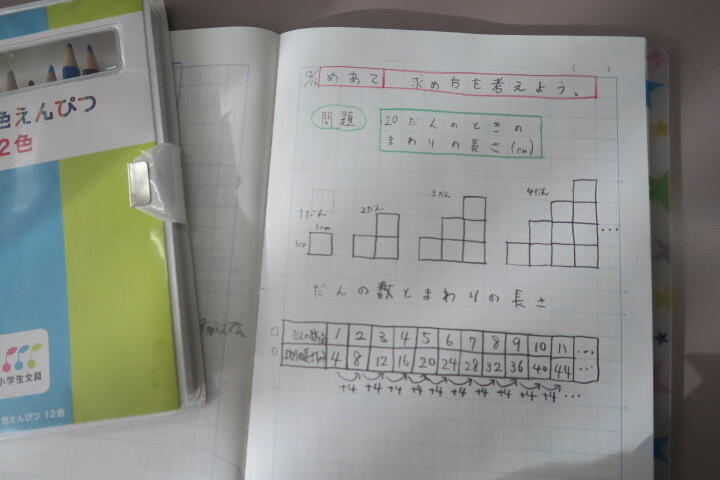 色えんぴつ
2色
小学生文具
色えんぴつ 12色
めあて 求め方を考えよう。
問題
20だんのときの
まわりの長さ(cm)
1だん 2だん 3だん 4だん
1cm
1cm
…
だんの数とまわりの長さ
だんの数 1 2 3 4 5 6 7 8 9 10 11 …
まわりの長さ 4 8 12 16 20 24 28 32 36 40 44 …
+4 +4 +4 +4 +4 +4 +4 +4 +4 +4 …